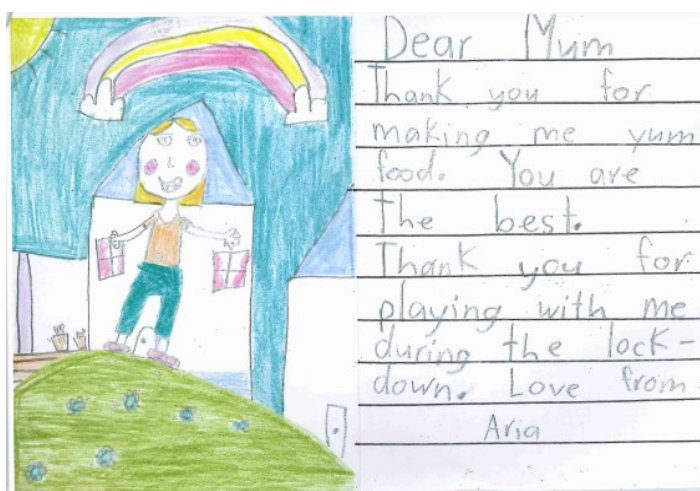 Dear Mum
Thank you for
making me yum
food. You are
the best.
Thank you for
playing with me
during the lock-
down. Love from
Aria